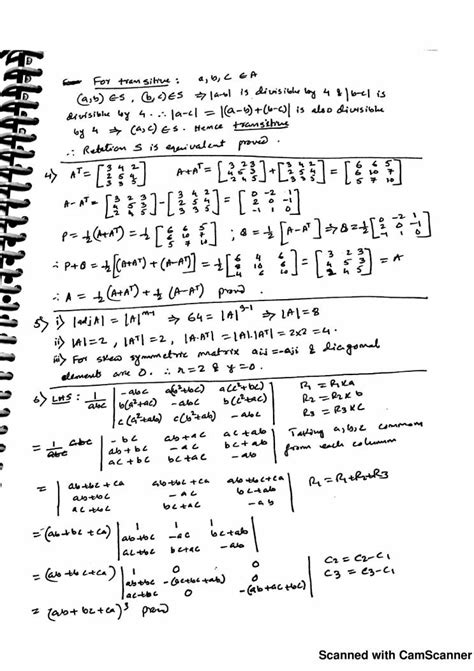 For transitive : a, b, c ∈ A
(a,b) ∈ S, (b,c) ∈ S ⇒ |a-b| is divisible by 4 & |b-c| is
divisible by 4 ∴ |a-c| = |(a-b)+(b-c)| is also divisible
by 4 ⇒ (a,c) ∈ S. Hence transitive
∴ Relation S is equivalent proved.
4) A^T = [3 4 2; 2 5 4; 3 3 5] A+A^T = [3 2 3; 4 5 3; 2 4 5] + [3 4 2; 2 5 4; 3 3 5] = [6 6 5; 6 10 7; 5 7 10]
A-A^T = [3 2 3; 4 5 3; 2 4 5] - [3 4 2; 2 5 4; 3 3 5] = [0 -2 1; 2 0 -1; -1 1 0]
P = ½(A+A^T) = ½ [6 6 5; 6 10 7; 5 7 10] ; Q = ½[A-A^T] ⇒ Q = ½ [0 -2 1; 2 0 -1; -1 1 0]
∴ P+Q = ½[(A+A^T) + (A-A^T)] = ½ [6 4 6; 8 10 6; 4 8 10] = [3 2 3; 4 5 3; 2 4 5] = A
∴ A = ½(A+A^T) + ½(A-A^T) proved.
5) i) |adj A| = |A|^n-1 ⇒ 64 = |A|^3-1 ⇒ |A| = 8
ii) |A| = 2, |A^T| = 2, |A.A^T| = |A|.|A^T| = 2x2 = 4.
iii) For skew symmetric matrix aij = -aji & diagonal
elements are 0. ∴ x = 2 & y = 0.
6) LHS : 1/abc | -abc a(b²+bc) a(c²+bc); b(a²+ac) -abc b(c²+ac); c(a²+ab) c(b²+ab) -abc | R1 = R1xa
R2 = R2xb
R3 = R3xc
= 1/abc abc | -bc ab+ac ac+ab; ab+bc -ac bc+ab; ac+bc bc+ac -ab | Taking a, b, c common
from each column
= | ab+bc+ca ab+bc+ca ab+bc+ca; ab+bc -ac bc+ab; ac+bc bc+ac -ab | R1 = R1+R2+R3
= (ab+bc+ca) | 1 1 1; ab+bc -ac bc+ab; ac+bc bc+ac -ab |
= (ab+bc+ca) | 1 0 0; ab+bc -(bc+bc+ab) 0; ac+bc 0 -(ab+ac+bc) | C2 = C2-C1
C3 = C3-C1
= (ab+bc+ca)³ proved
Scanned with CamScanner